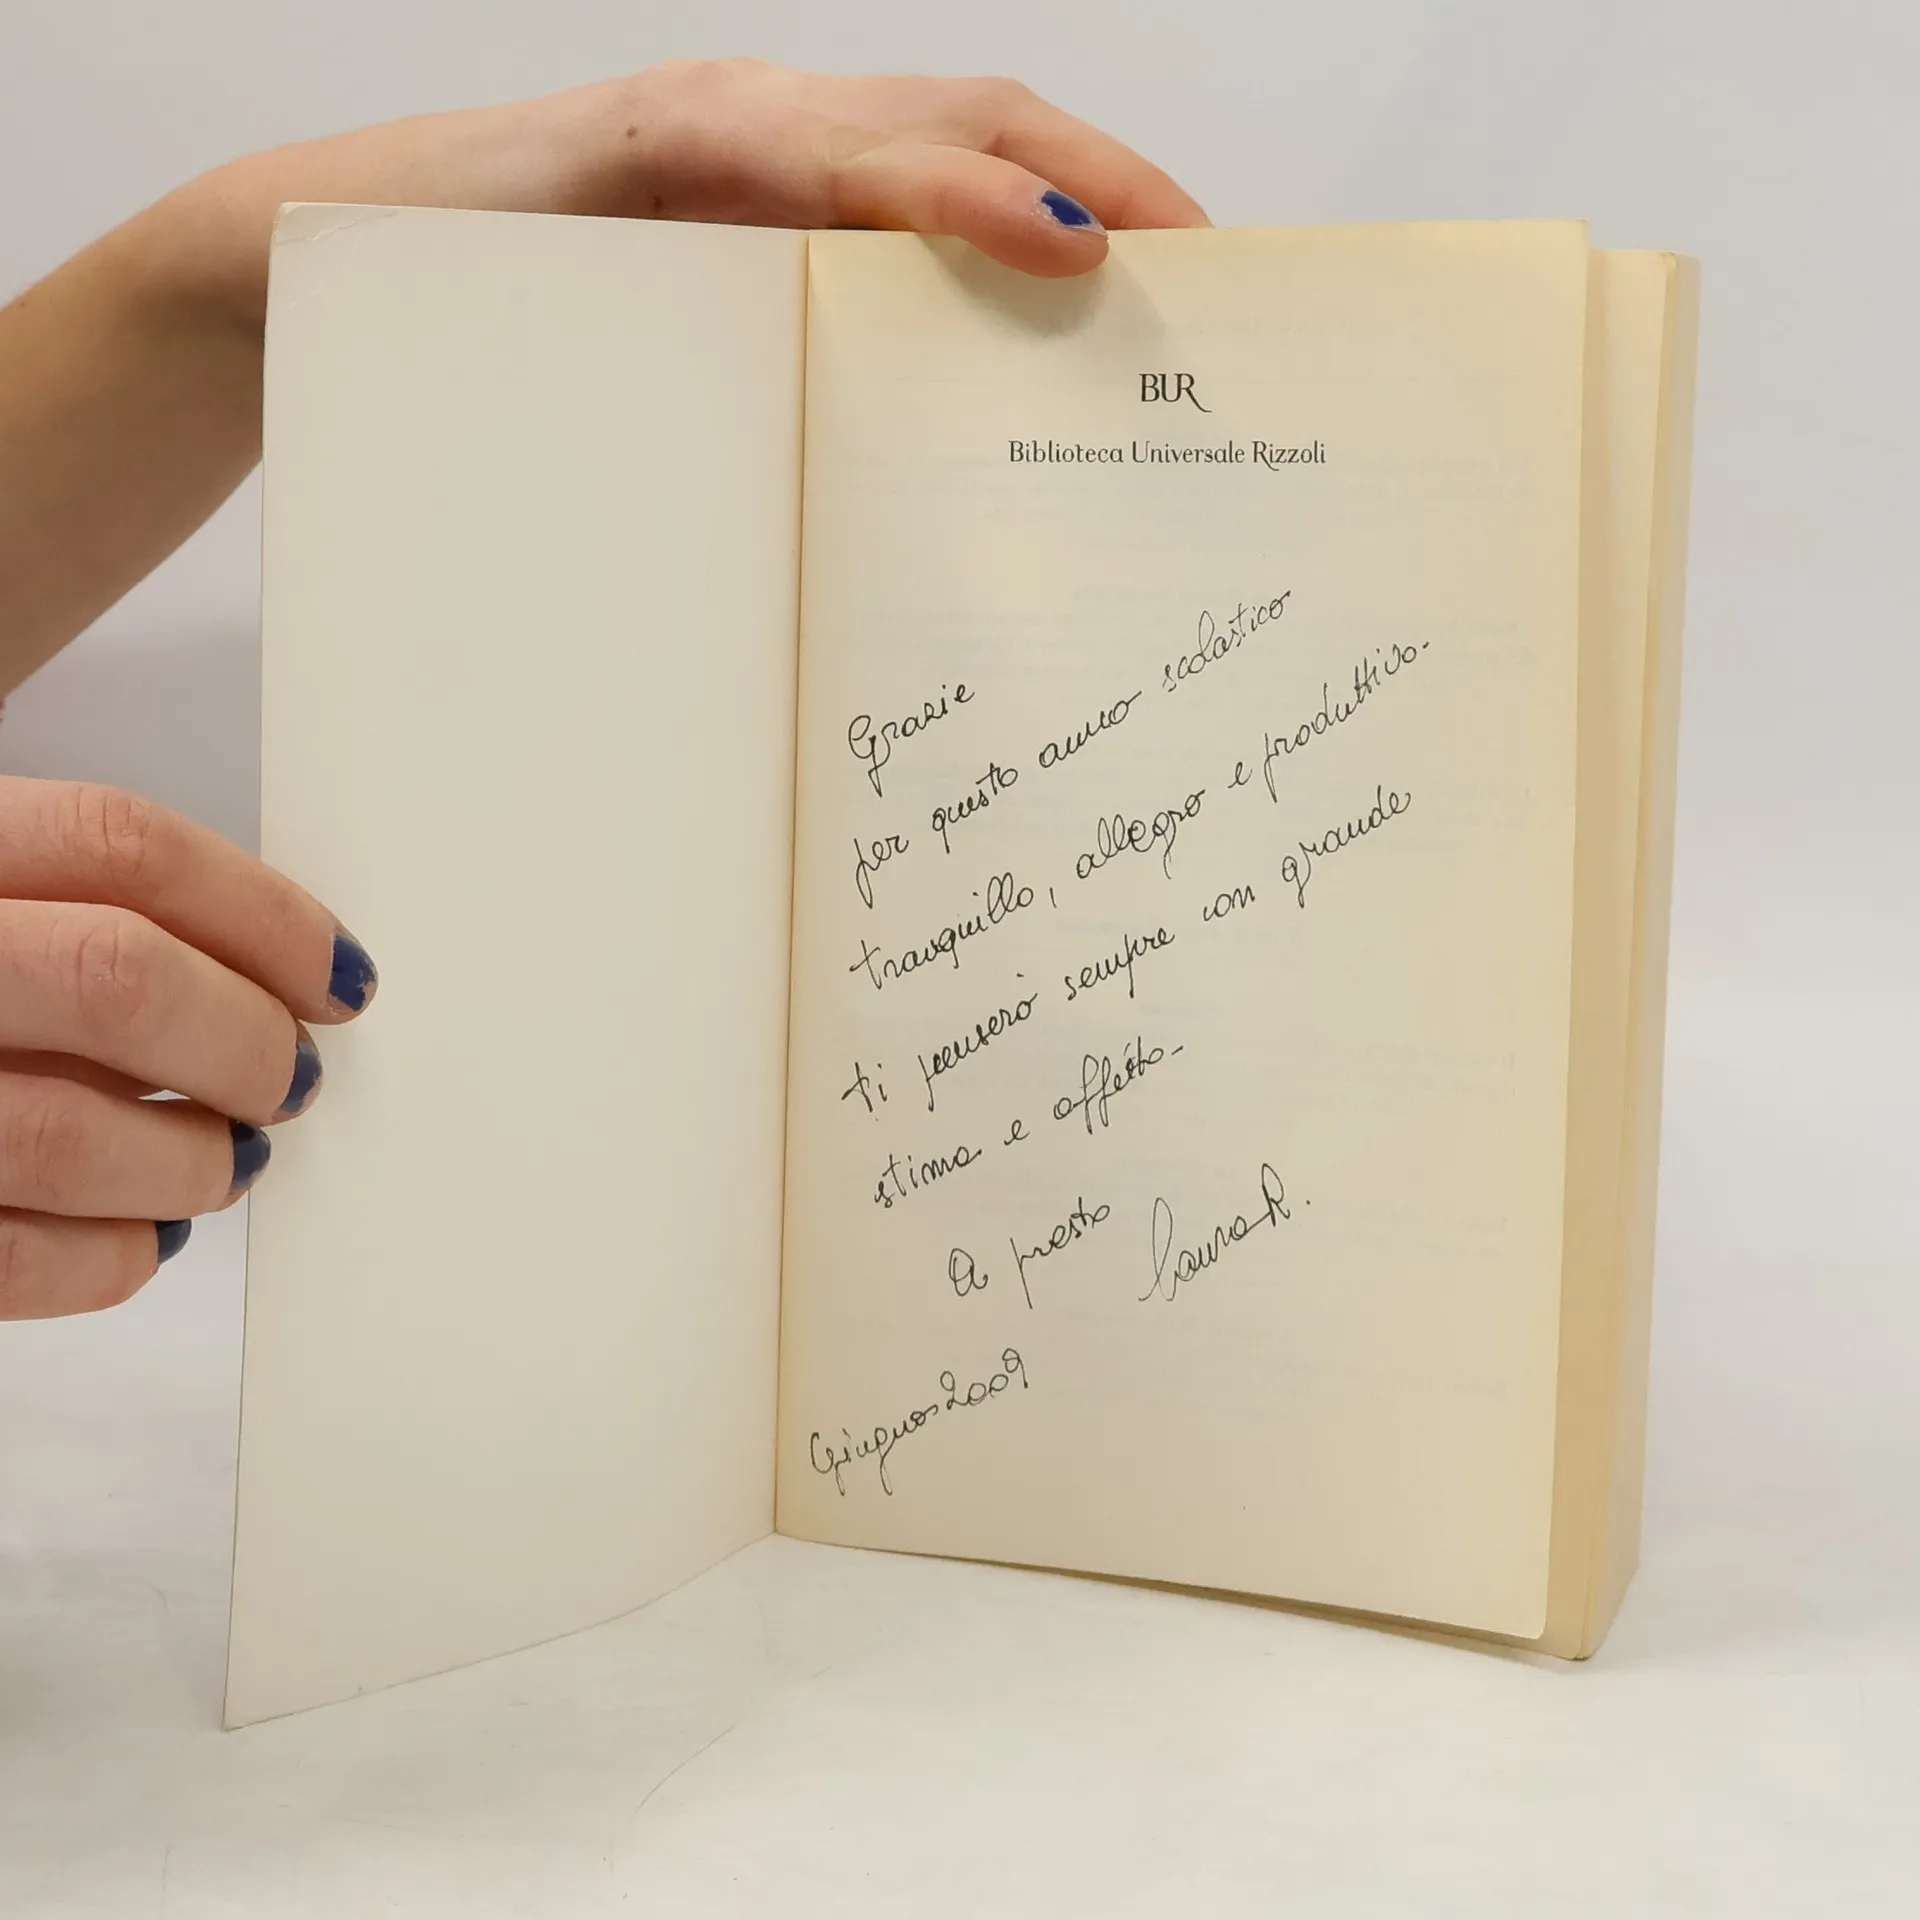 BUR
Biblioteca Universale Rizzoli
Grazie
per questo anno scolastico
tranquillo, allegro e produttivo.
ti penserò sempre con grande
stima e affetto-
A presto Laura R.
Giugno 2009